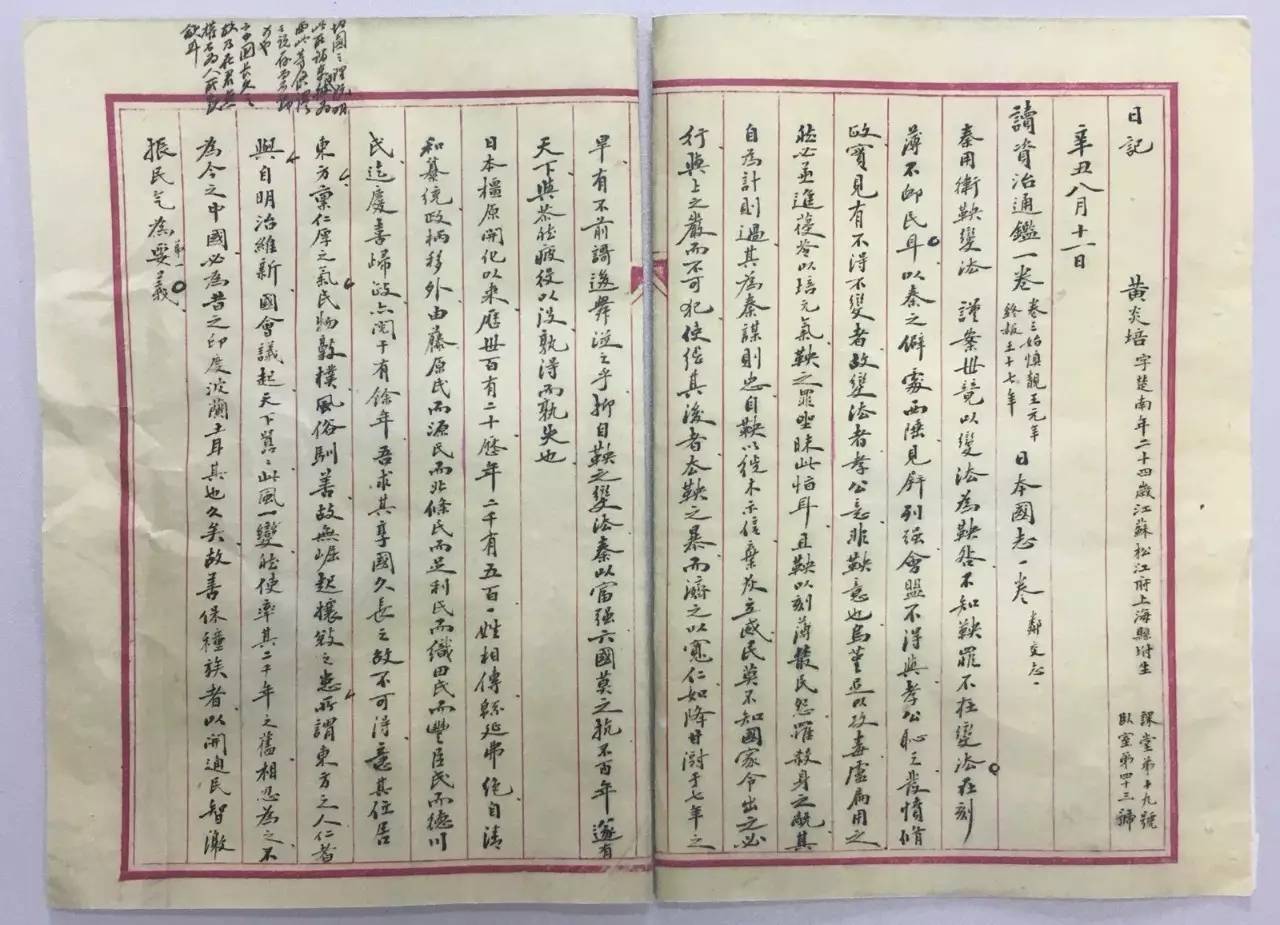 日記 黃炎培 字楚南年二十四歲江蘇松江府上海縣附生 課堂第十九號 臥室第四十三號
辛丑八月十一日
讀資治通鑑一卷 卷三始慎靚王元年 終赧王十七年 日本國志一卷 鄰交志一
秦用衛鞅變法 謹案世竟以變法為鞅咎不知鞅罪不在變法在刻
薄不卹民耳以秦之僻處西陲見屏列强會盟不得與孝公恥之發憤脩
政實見有不得不變者故變法者孝公意非鞅意也烏堇足以攻毒盧扁用之
然必並進葠苓以培元氣鞅之罪坐昧此恉耳且鞅以刻薄叢民怨罹殺身之旤其
自為計則過其為秦謀則忠自鞅以徙木示信棄灰立威民莫不知國家令出之必
行與上之嚴而不可犯使繼其後者本鞅之暴而濟之以寬仁如降甘澍于七年之
旱有不前謌後舞從之乎抑自鞅之變法秦以富强六國莫之抗不百年遂有
天下與苶然疲役以沒孰得而孰失也
日本橿原開化以來歷世百有二十歷年二千有五百一姓相傳緜延弗絕自清
和纂統政柄移外由藤原氏而源氏而北條氏而足利氏而織田氏而豐臣氏而德川
氏迄慶喜歸政亦閱千有餘年吾求其享國久長之故不可得意其位居
東方稟仁厚之氣民物敦樸風俗馴善故無崛起攘敚之患所謂東方之人仁者
與自明治維新國會議起天下囂囂此風一變然使率其二千年之舊相忍為之不
為今之中國必為昔之印度波蘭土耳其也久矣故善保種族者以開通民智激
振民气為第一要義